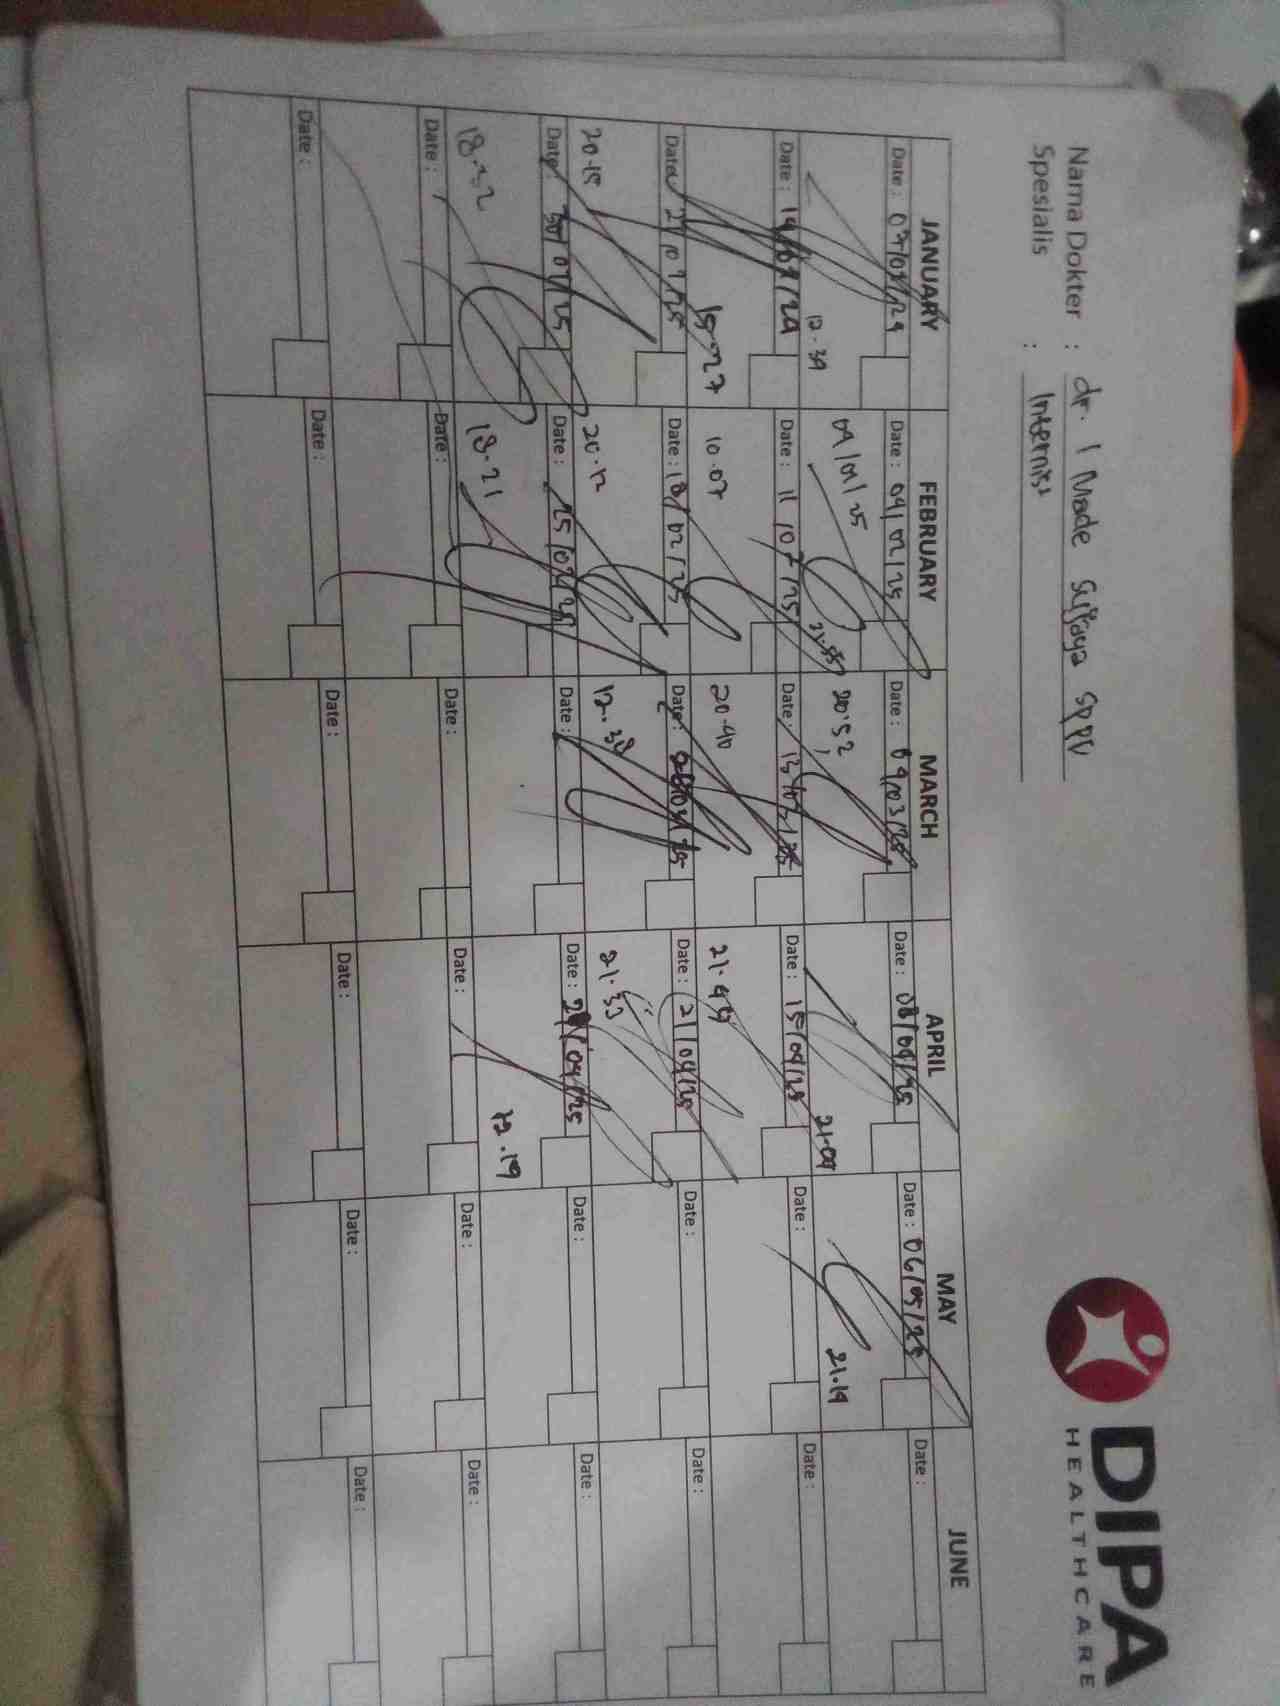 DIPA
HEALTHCARE
Nama Dokter : dr. I Made Sujaya SPPD
Spesialis : Internist
JANUARY FEBRUARY MARCH APRIL MAY JUNE
Date : Date : 04/02/25 Date : 04/03/25 Date : 08/04/25 Date : 06/05/25 Date :
12.39 20.52 21.09 21.19
Date : Date : 11/02/25 Date : 13/03/25 Date : 15/04/25 Date : Date :
15.27 10.07 20.40 21.49
Date : Date : 18/02/25 Date : Date : 21/04/25 Date : Date :
20.15 20.12 12.38 21.33
Date : 30/01/25 Date : 25/02/25 Date : Date : Date : Date :
18.32 18.21 12.19
Date : Date : Date : Date : Date : Date :
Date : Date : Date : Date : Date : Date :